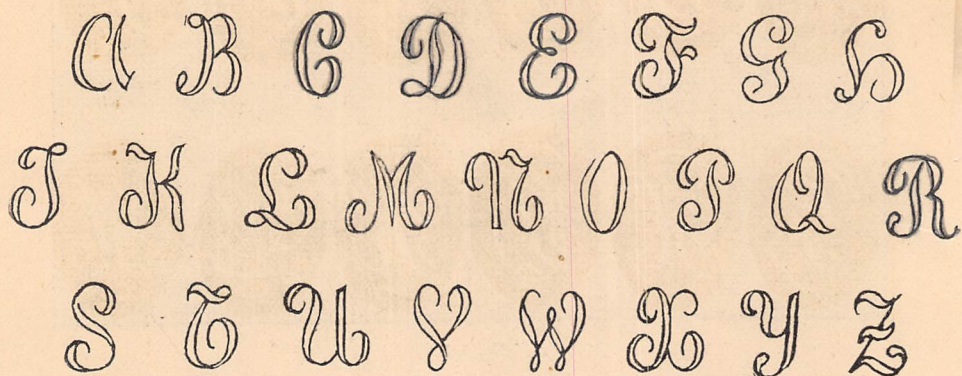 A B C D E F G H
J K L M N O P Q R
S T U V W X Y Z